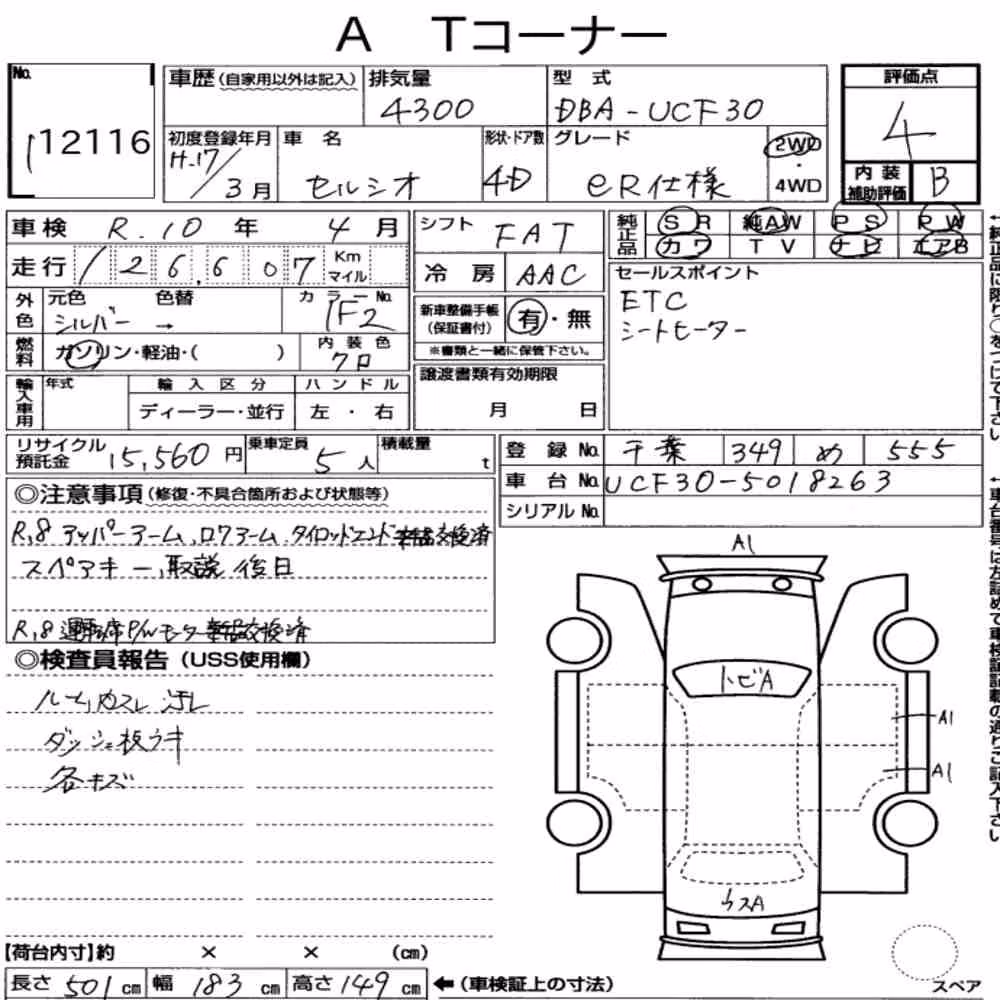 A Tコーナー
No. 12116
車歴 (自家用以外は記入)
排気量 4300
型式 DBA-UCF30
評価点 4
内装補助評価 B
初度登録年月 H.17/3月
車名 セルシオ
形状・ドア数 4D
グレード eR仕様
2WD・4WD
車検 R.10年 4月
走行 126,607 Km マイル
外色 元色 シルバー 色替 →
カラーNo. 1F2
燃料 ガソリン・軽油・( )
内装色 クロ
輸入車用 年式
輸入区分 ディーラー・並行
ハンドル 左・右
シフト FAT
冷房 AAC
新車整備手帳(保証書付) 有・無
※書類と一緒に保管下さい。
譲渡書類有効期限
月 日
純正品 SR 純AW PS PW
カワ TV ナビ エアB
セールスポイント
ETC
シートヒーター
←純正品に限り○をつけて下さい
リサイクル預託金 15,560円
乗車定員 5人
積載量 t
登録No. 千葉 349 め 555
車台No. UCF30-5018263
シリアルNo.
←車台番号は左詰めで車検証記載の通りご記入下さい
◎注意事項(修復・不具合箇所および状態等)
R,8 アッパーアーム、ロワアーム、タイロッドエンド 新品交換済
スペアキー、取説 後日
R,8 運転席P/Wモーター 新品交換済
◎検査員報告(USS使用欄)
ルームカスレ 汚レ
ダッシュ板ウキ
各キズ
A1
トビA
A1
A1
ウスA
スペア
【荷台内寸】約 × × (cm)
長さ 501cm 幅 183cm 高さ 149cm ←(車検証上の寸法)